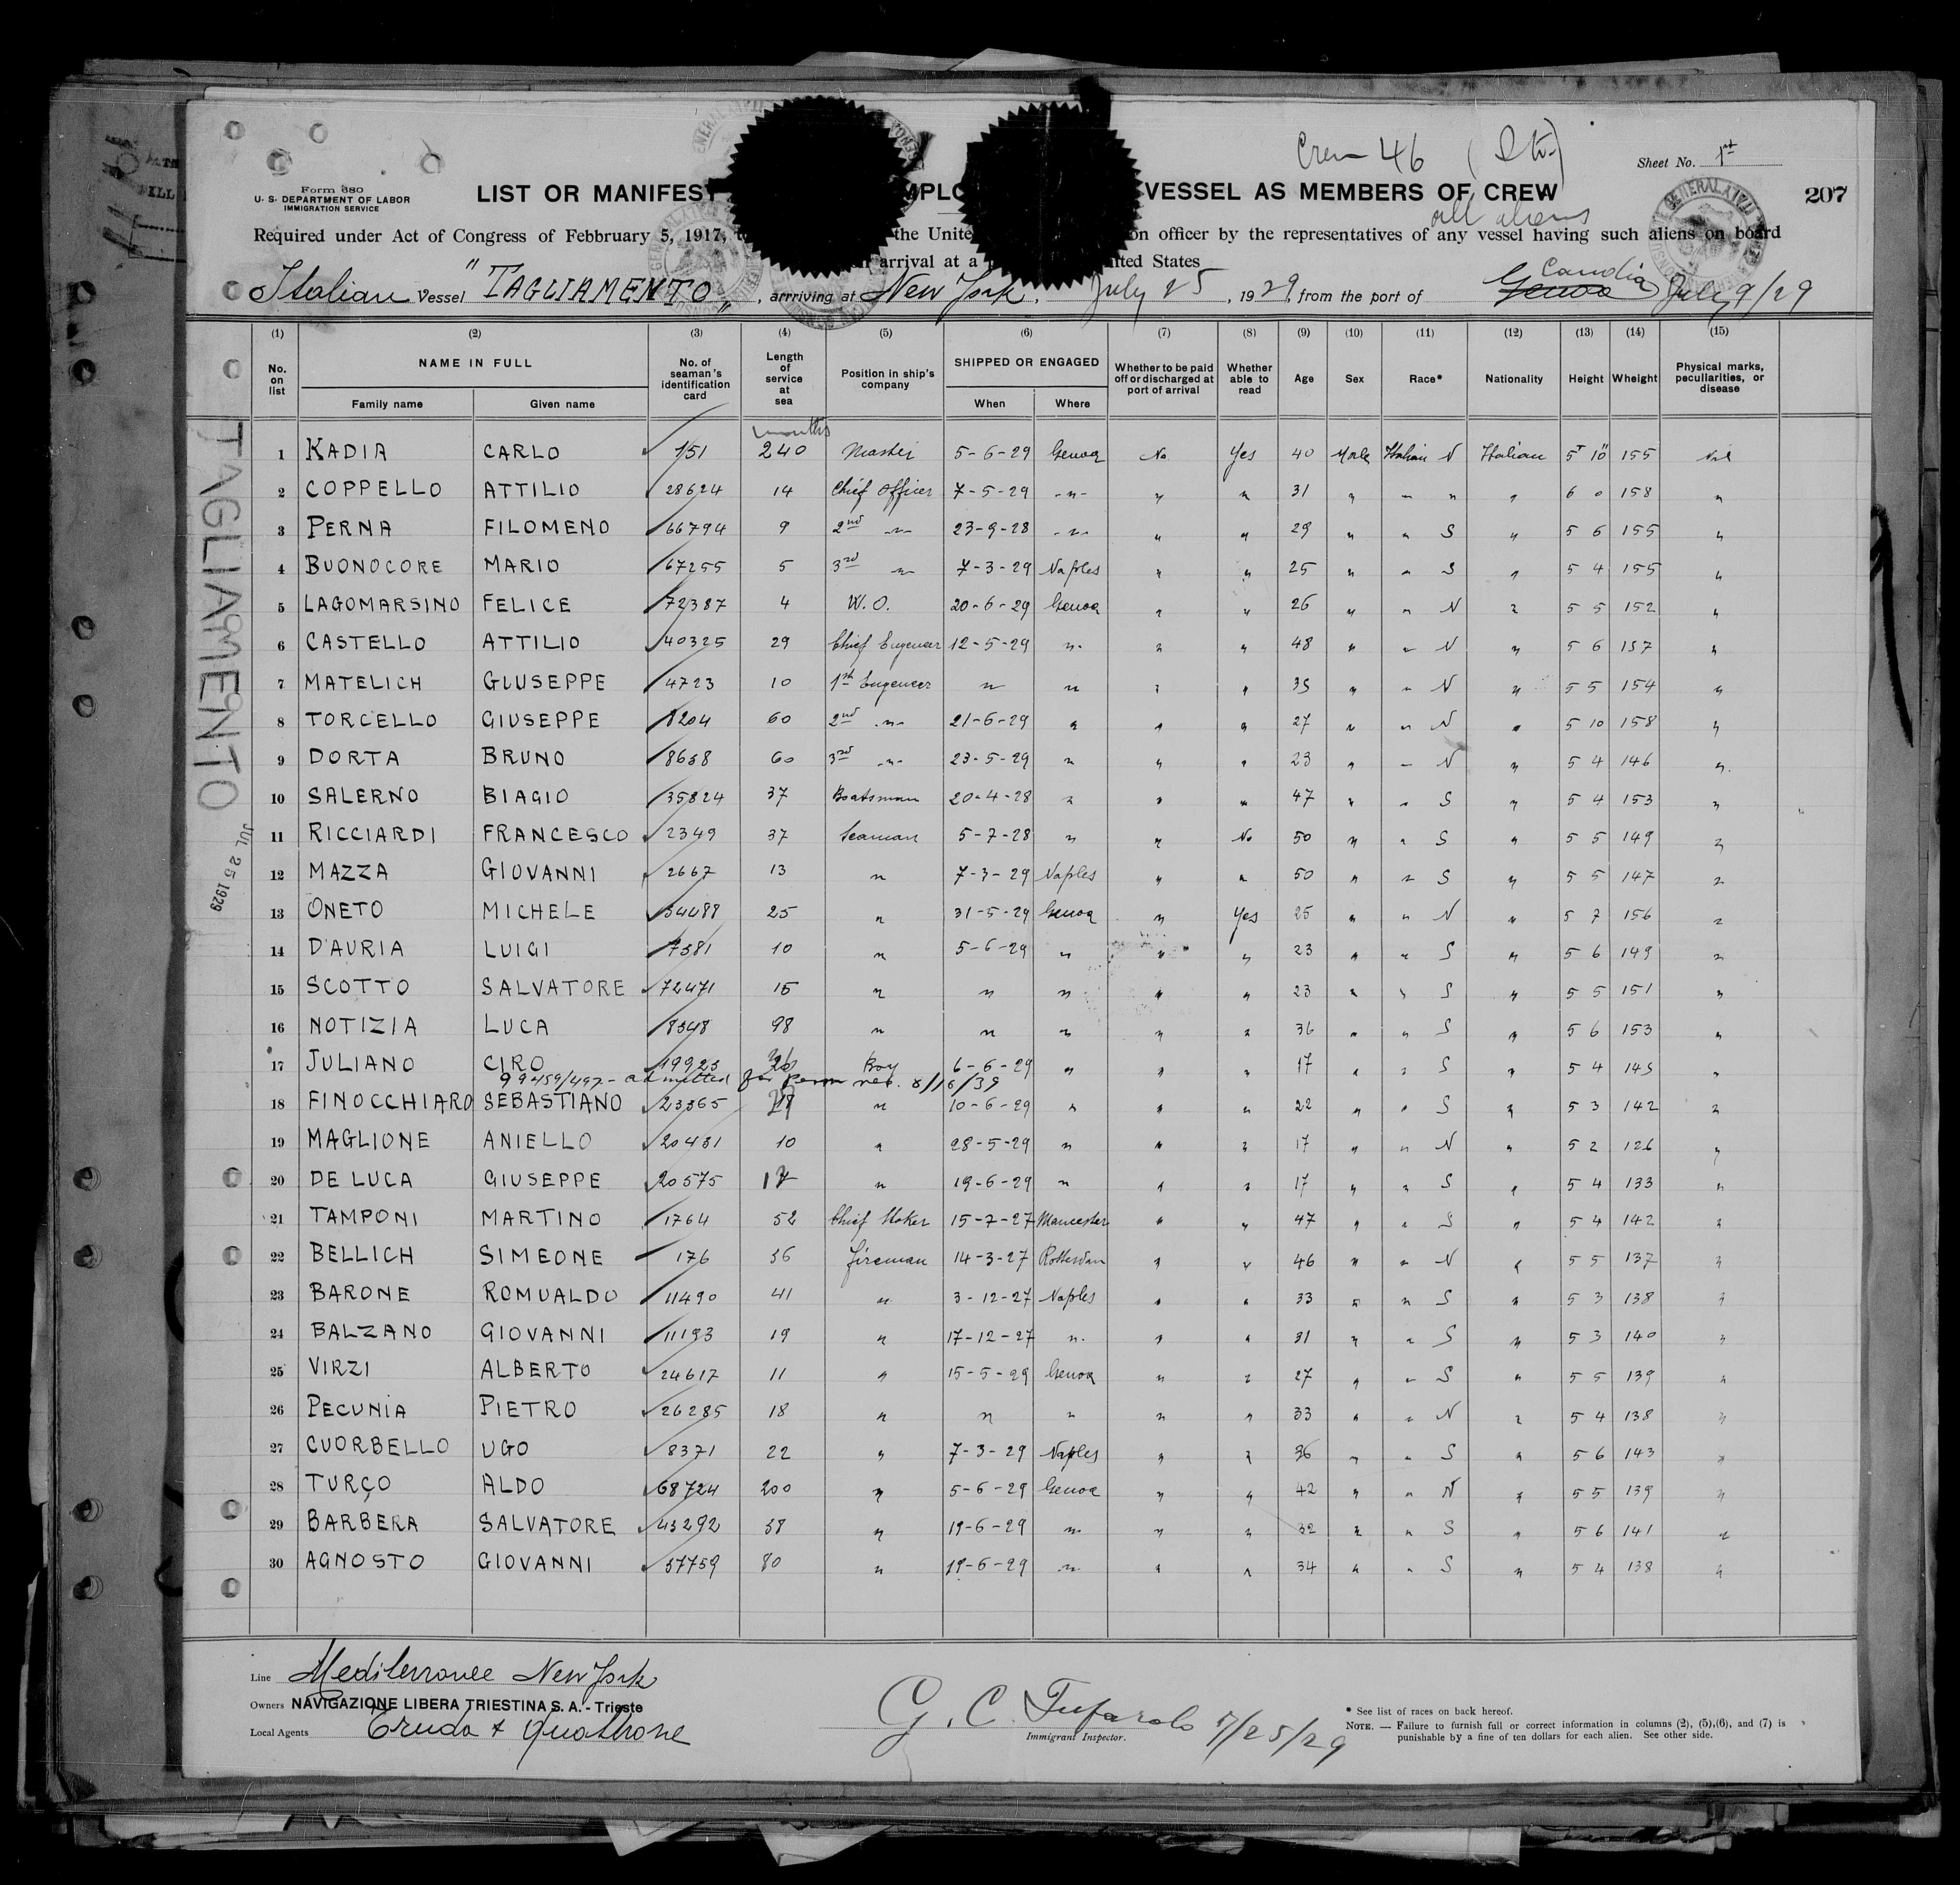 Crew 46 (Ita)
Sheet No. 1st
Form 680
U. S. DEPARTMENT OF LABOR
IMMIGRATION SERVICE
LIST OR MANIFEST VESSEL AS MEMBERS OF CREW
207
all aliens
Required under Act of Congress of Febbruary 5, 1917, the Unite on officer by the representatives of any vessel having such aliens on board
arrival at a ited States
Italian Vessel "TAGLIAMENTO", arriving at New York, July 25, 1929, from the port of Genoa Candia July 9/29
(1) (2) (3) (4) (5) (6) (7) (8) (9) (10) (11) (12) (13) (14) (15)
No. on list NAME IN FULL Family name Given name No. of seaman's identification card Length of service at sea Position in ship's company SHIPPED OR ENGAGED When Where Whether to be paid off or discharged at port of arrival Whether able to read Age Sex Race* Nationality Height Wheight Physical marks, peculiarities, or disease
months
1 KADIA CARLO 151 240 Master 5-6-29 Genoa No Yes 40 Male Italian N Italian 5' 10" 155 Nil
2 COPPELLO ATTILIO 28624 14 Chief Officer 7-5-29 -"- " " 31 " " " " 6 0 158 "
3 PERNA FILOMENO 66794 9 2nd -"- 23-9-28 -"- " " 29 " " S " 5 6 155 "
4 BUONOCORE MARIO 67255 5 3rd " 7-3-29 Naples " " 25 " " S " 5 4 155 "
5 LAGOMARSINO FELICE 72387 4 W.O. 20-6-29 Genoa " " 26 " " N " 5 5 152 "
6 CASTELLO ATTILIO 40325 29 Chief Engeneer 12-5-29 " " " 48 " " N " 5 6 157 "
7 MATELICH GIUSEPPE 4723 10 1st Engeneer " " " " 35 " " N " 5 5 154 "
8 TORCELLO GIUSEPPE 8204 60 2nd -"- 21-6-29 " " " 27 " " N " 5 10 158 "
9 DORTA BRUNO 8658 60 3rd -"- 23-5-29 " " " 23 " " N " 5 4 146 "
10 SALERNO BIAGIO 35824 37 Boatsman 20-4-28 " " " 47 " " S " 5 4 153 "
11 RICCIARDI FRANCESCO 2349 37 Seaman 5-7-28 " " No 50 " " S " 5 5 149 "
12 MAZZA GIOVANNI 2667 13 " 7-3-29 Naples " " 50 " " S " 5 5 147 "
13 ONETO MICHELE 34488 25 " 31-5-29 Genoa " Yes 25 " " N " 5 7 156 "
14 D'AURIA LUIGI 7581 10 " 5-6-29 " " " 23 " " S " 5 6 149 "
15 SCOTTO SALVATORE 72471 15 " " " " " 23 " " S " 5 5 151 "
16 NOTIZIA LUCA 8348 98 " " " " " 36 " " S " 5 6 153 "
17 JULIANO CIRO 19923 Boy 6-6-29 " " " 17 " " S " 5 4 145 "
99459/497 - admitted for perm res. 8/16/39
18 FINOCCHIARO SEBASTIANO 23365 " 10-6-29 " " " 22 " " S " 5 3 142 "
19 MAGLIONE ANIELLO 20431 10 " 28-5-29 " " " 17 " " N " 5 2 126 "
20 DE LUCA GIUSEPPE 20575 17 " 19-6-29 " " " 17 " " S " 5 4 133 "
21 TAMPONI MARTINO 1764 52 Chief Stoker 15-7-27 Mancester " " 47 " " S " 5 4 142 "
22 BELLICH SIMEONE 176 36 fireman 14-3-27 Rotterdam " " 46 " " N " 5 5 137 "
23 BARONE ROMUALDO 11490 41 " 3-12-27 Naples " " 33 " " S " 5 3 138 "
24 BALZANO GIOVANNI 11193 19 " 17-12-27 " " " 31 " " S " 5 3 140 "
25 VIRZI ALBERTO 24617 11 " 15-5-29 Genoa " " 27 " " S " 5 5 139 "
26 PECUNIA PIETRO 26285 18 " " " " " 33 " " N " 5 4 138 "
27 CUORBELLO UGO 8371 22 " 7-3-29 Naples " " 36 " " S " 5 6 143 "
28 TURCO ALDO 68724 200 " 5-6-29 Genoa " " 42 " " N " 5 5 139 "
29 BARBERA SALVATORE 43292 38 " 19-6-29 " " " 32 " " S " 5 6 141 "
30 AGNOSTO GIOVANNI 57759 80 " 19-6-29 " " " 34 " " S " 5 4 138 "
TAGLIAMENTO
JUL 25 1929
Line Mediterranee New York
Owners NAVIGAZIONE LIBERA TRIESTINA S. A. - Trieste
Local Agents Truda & Quattrone
G. C. Tufarolo 7/25/29
Immigrant Inspector.
* See list of races on back hereof.
NOTE. — Failure to furnish full or correct information in columns (2), (5), (6), and (7) is
punishable by a fine of ten dollars for each alien. See other side.